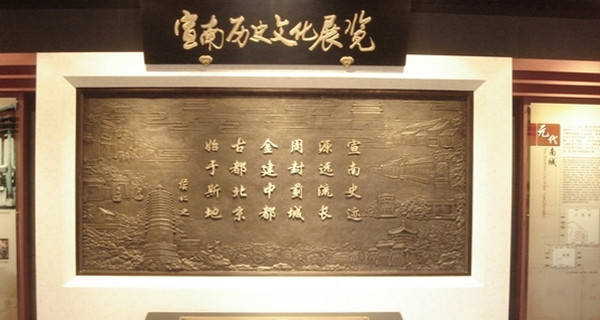 宣南历史文化展览
宣南史迹
源远流长
周封蓟城
金建中都
古都北京
始于斯地
侯仁之
元代
南城